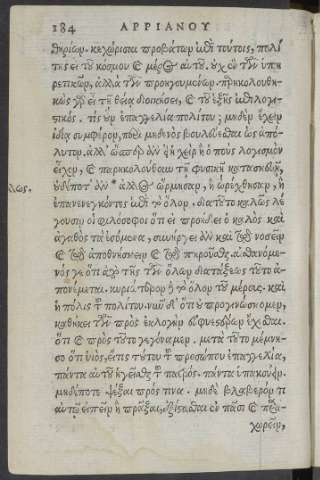 184 ΑΡΡΙΑΝΟΥ
θηρίων. κεχώρισαι προβάτων ἐπὶ τούτοις, πολί
της εἶ τοῦ κόσμου καὶ μέρος αὐτοῦ. οὐχ ἓν τῶν ὑπη
ρετικῶν, ἀλλὰ τῶν προηγουμένων. παρακολουθη-
τικὸς γὰρ εἶ τῇ θείᾳ διοικήσει, καὶ τοῦ ἑξῆς ἐπιλογι-
στικός. τίς οὖν ἐπαγγελία πολίτου; μηδὲν ἔχειν
ἰδίᾳ συμφέρον, περὶ μηδενὸς βουλεύεσθαι ὡς ἀπό-
λυτον. ἀλλ' ὥσπερ ἂν εἰ ἡ χεὶρ ἢ ὁ ποὺς λογισμὸν
εἶχον, καὶ παρηκολούθουν τῇ φυσικῇ κατασκευῇ,
οὐδέποτ' ἂν * ἄλλος ὥρμησαν, ἢ ὠρέχθησαν, ἢ
λως.
ἐπανενεγκόντες ἐπὶ τὸ ὅλον. διὰ τοῦτο καλῶς λέ
γουσιν οἱ φιλόσοφοι ὅτι εἰ προῄδει ὁ καλὸς καὶ
ἀγαθὸς τὰ ἐσόμενα, συνήργει ἂν καὶ τῷ νοσεῖν
καὶ τῷ ἀποθνήσκειν καὶ τῷ πηροῦσθαι. αἰσθανόμε-
νός γε ὅτι ἀπὸ τῆς τῶν ὅλων διατάξεως τοῦτο ἀ-
πονέμεται. κυριώτερον δὲ τὸ ὅλον τοῦ μέρους. καὶ
ἡ πόλις τοῦ πολίτου. νῦν δ' ὅτι οὐ προγινώσκομεν,
καθήκει τῶν πρὸς ἐκλογὴν εὐφυεστέρων ἔχεσθαι.
ὅτι καὶ πρὸς τοῦτο γεγόναμεν. μετὰ τοῦτο μέμνη-
σο ὅτι υἱὸς, εἶ τις τούτου τοῦ προσώπου ἐπαγγελία,
πάντα αὐτοῦ ἡγεῖσθαι τοῦ πατρός. πάντα ὑπακούειν.
μηδέποτε ψέξαι πρός τινα. μηδὲ βλαβερόν τι
αὐτῷ εἰπεῖν ἢ πρᾶξαι, ἐξίστασθαι ἐν πᾶσι καὶ παρα-
χωρεῖν,